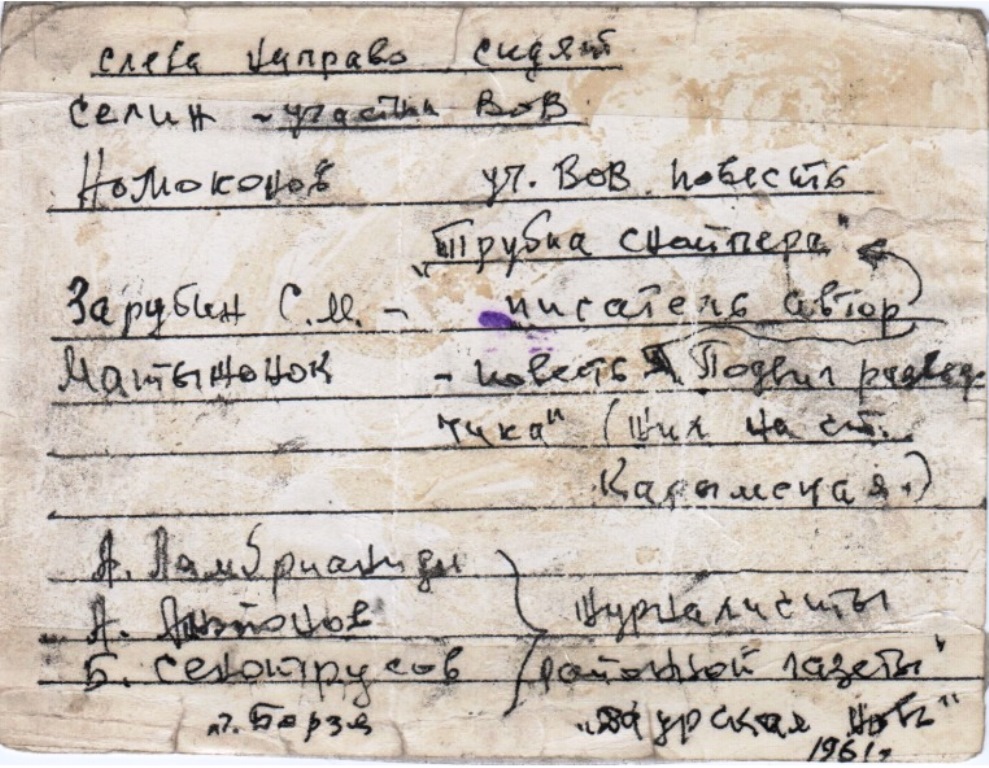 слева направо сидят
Селин - участн ВОВ
Номоконов уч. ВОВ повесть
"Трубка снайпера"
Зарубин С.М. - писатель автор
Матыжонок - повесть "Подвиг развед-
чика" (жил на ст.
Карымская.)
А. Ламбрианиди
А. Антонов журналисты
Б. Сенотрусов районной газеты"
г. Борзя "Даурская новь"
1961г.